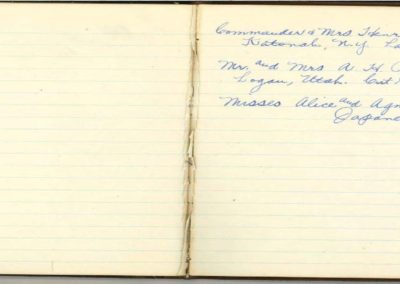 Commander & Mrs Henr
Katonah, N.Y. La
Mr. and Mrs A. H.
Logan, Utah.
Misses Alice and Agn
Japane